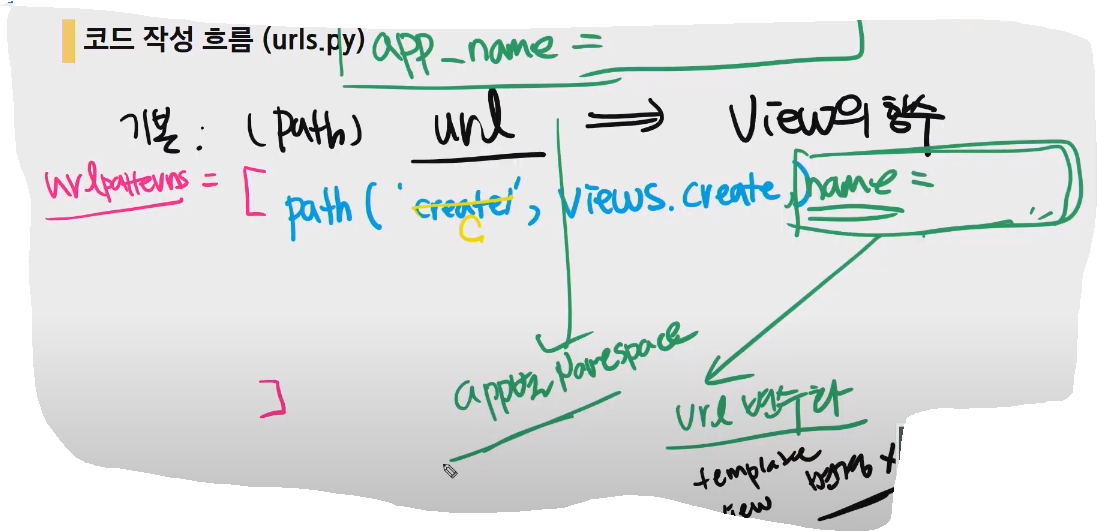 코드 작성 흐름 (urls.py)
app_name =
기본 : (path) url ⇒ View의 함수
urlpatterns = [
path( 'create/', views.create, ) name = ' '
C
app별로 Namespace
]
url 변수화
template
view
변경 X